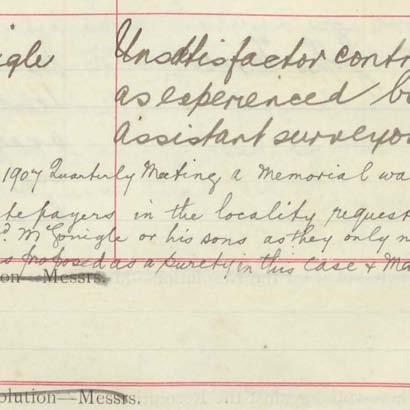 igle Unsatisfactor contr
as experienced b
assistant surveyo
1907 Quarterly Meeting, a Memorial wa
tepayers in the locality request
d. McGonigle or his sons as they only
s proposed as a surety in this case & Ma
on—Messrs.
olution—Messrs.